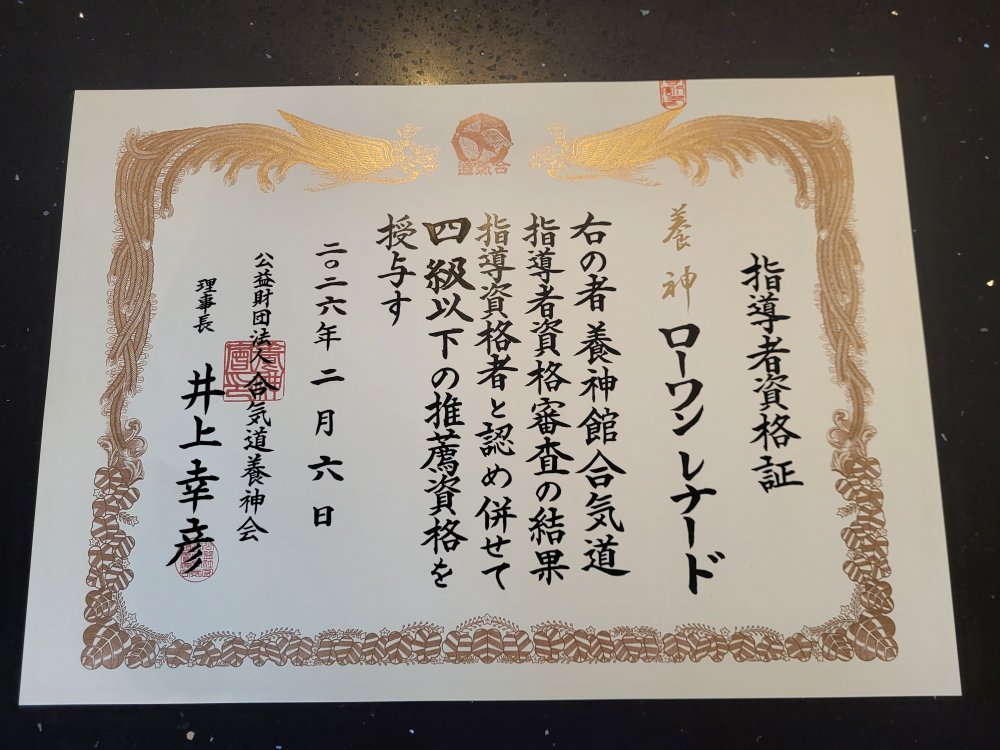 指導者資格証
養神
ローワン レナード
右の者養神館合気道
指導者資格審査の結果
指導資格者と認め併せて
四級以下の推薦資格を
授与す
二〇二六年二月六日
公益財団法人合気道養神会
理事長 井上幸彦